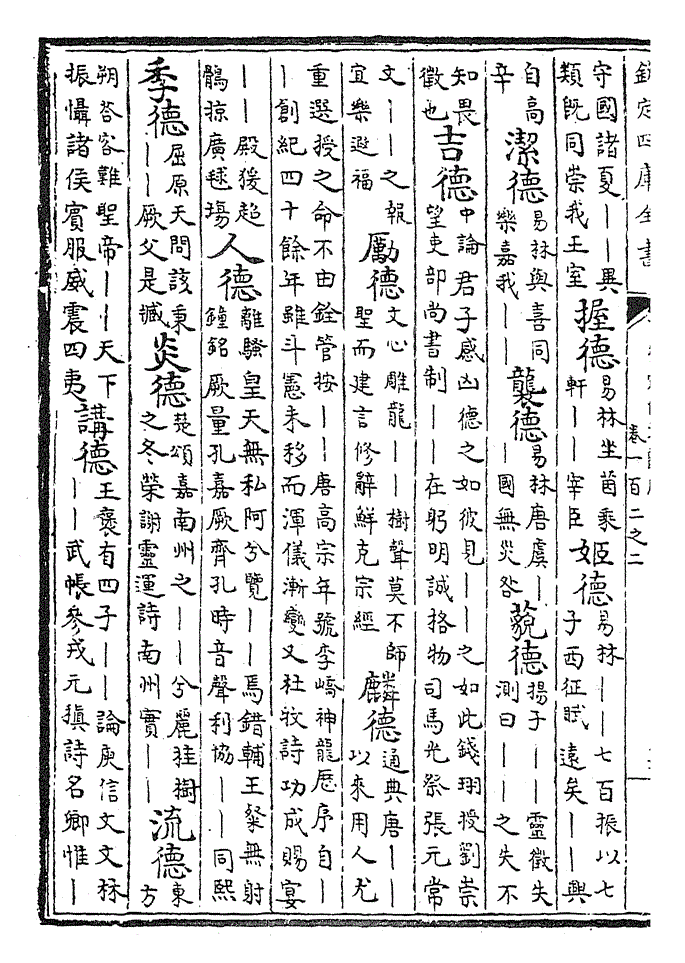 欽定四庫全書
卷一百二之二
守國諸夏丨丨異類既同崇我王室 握德 易林坐茵乘軒丨丨宰臣 姬德 易林丨丨七百振以七子西征賦遠矣丨丨興
自高辛 潔德 易林與喜同樂嘉我丨丨 襲德 易林唐虞丨丨國無災咎 藐德 揚子丨丨靈徵失測曰丨丨之失不
知畏徵也 吉德 中論君子感凶德之如彼見丨丨之如此錢珝授劉崇望吏部尚書制丨丨在躬明誠格物司馬光祭張元常
文丨丨之報宜樂遐福 勵德 文心雕龍丨丨樹聲莫不師聖而建言修辭鮮克宗經 麟德 通典唐丨丨以來用人尤
重選授之命不由銓管按丨丨唐高宗年號李嶠神龍歷序自丨丨創紀四十餘年雖斗憲未移而渾儀漸變又杜牧詩功成賜宴
丨丨殿猨超鶻掠廣毬場 人德 離騷皇天無私阿兮覽丨丨焉錯輔王粲無射鐘銘厥量孔嘉厥齊孔時音聲利協丨丨同熙
季德 屈原天問該秉丨丨厥父是臧 炎德 楚頌嘉南州之丨丨兮麗桂樹之冬榮謝靈運詩南州實丨丨 流德 東方
朔答客難聖帝丨丨天下振慴諸侯賓服威震四夷 講德 王褒有四子丨丨論庾信文文林丨丨武帳參戎元稹詩名卿惟丨